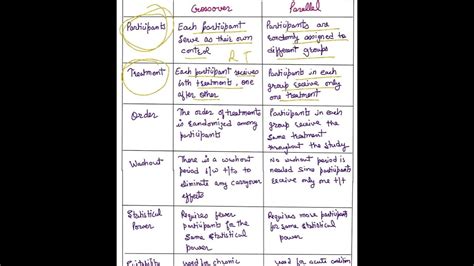 Crossover
Parallel
Participants
Each participant
serve as their own
control
R T
Participants are
randomly assigned to
different groups
Treatment
Each participant recieves
both treatments, one
after other
Participants in each
group receive only
one treatment
Order
The order of treatments
is randomized among
participants
Participants in each
group receive the
same treatment
throughout the study
Washout
There is a washout
period b/w t/t to
eliminate any carryover
effects
No washout period is
needed since participants
receive only one t/t
Statistical
Power
Requires fewer
participants for
the same statistical
power
Requires more participants
for same statistical
power
Suitability
used for chronic
used for acute condition